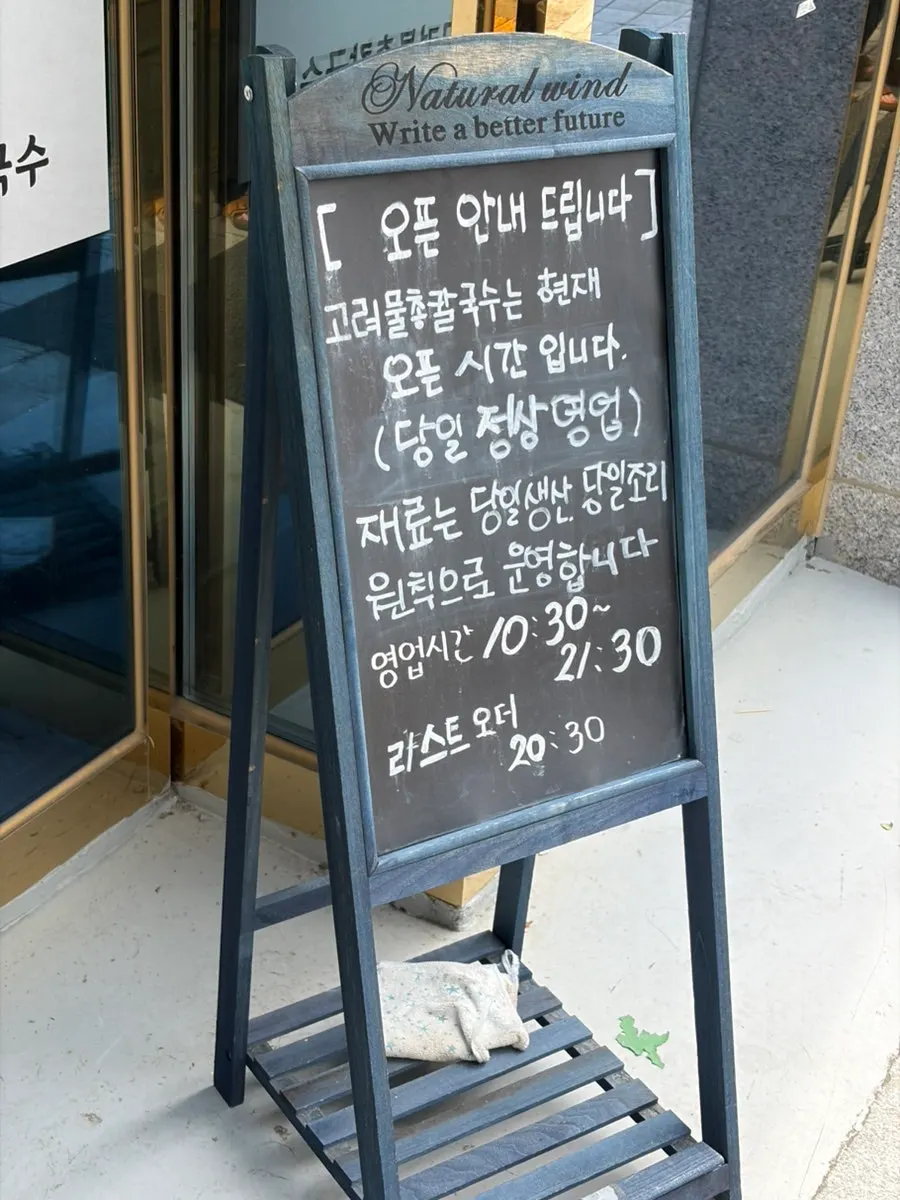 Natural wind
Write a better future
[ 오픈 안내 드립니다 ]
고려물총칼국수는 현재
오픈 시간 입니다.
(당일 정상영업)
재료는 당일생산. 당일조리
원칙으로 운영합니다
영업시간 10:30~
21:30
라스트 오더
20:30
국수